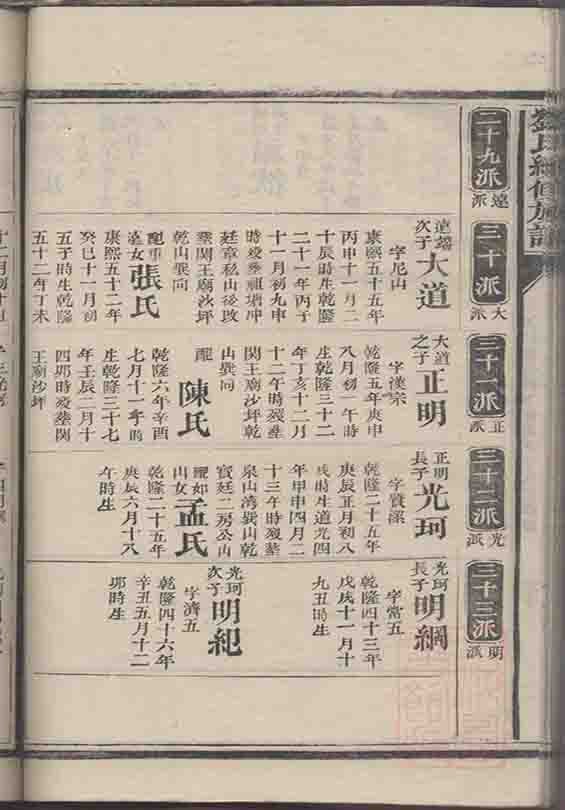 二十九派
遠派
三十派
大派
三十一派
正派
三十二派
光派
三十三派
明派
遠端次子大道
字尼山
康熙五十五年
丙申十一月二
十辰時生乾隆
二十一年丙子
十一月初九申
時歿塟祖塘冲
廷章私山後改
塟関王廟沙坪
乾山巽向
配重嘉女張氏
康熙五十二年
癸巳十一月初
五子時生乾隆
五十二年丁未
大道之子正明
字漢宗
乾隆五年庚申
八月初一午時
生乾隆三十二
年丁亥十二月
十二午時歿塟
関王廟沙坪乾
山巽向
配陳氏
乾隆六年辛酉
七月十一亭時
生乾隆三十七
年壬辰二月十
四卯時歿塟関
王廟沙坪
正明長子光珂
字賢溪
乾隆二十五年
庚辰正月初八
戌時生道光四
年甲申四月二
十三午時歿塟
泉山湾巽山乾
向
配如山女孟氏
乾隆二十五年
庚辰六月十八
午時生
光珂長子明綱
字常五
乾隆四十三年
戊戌十一月十
九丑時生
光珂次子明紀
字濟五
乾隆四十六年
辛丑五月十二
卯時生